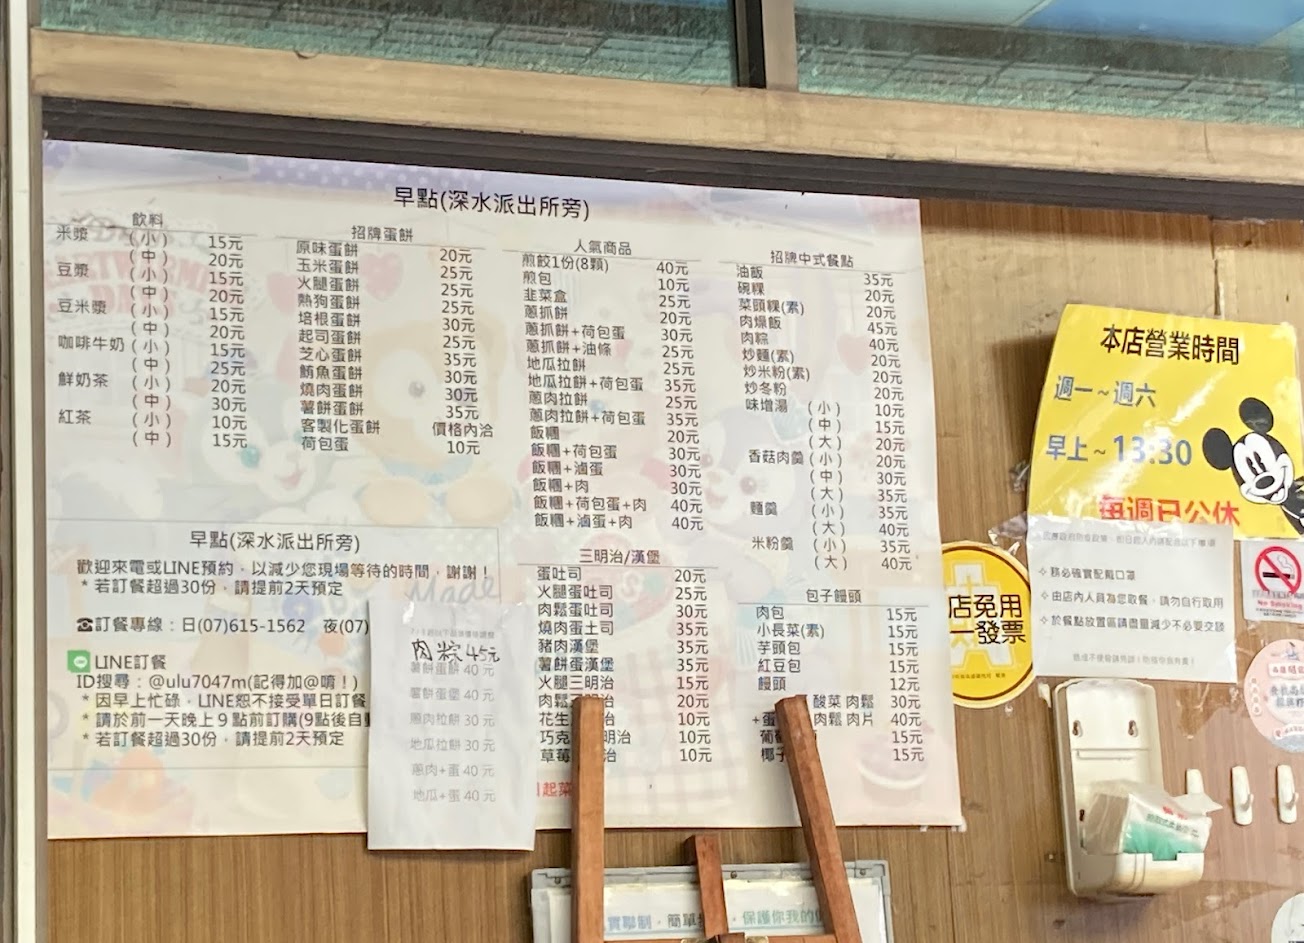 早點(深水派出所旁)
飲料
米漿 (小) 15元
(中) 20元
豆漿 (小) 15元
(中) 20元
豆米漿 (小) 15元
(中) 20元
咖啡牛奶 (小) 15元
(中) 25元
鮮奶茶 (小) 20元
(中) 30元
紅茶 (小) 10元
(中) 15元
招牌蛋餅
原味蛋餅 20元
玉米蛋餅 25元
火腿蛋餅 25元
熱狗蛋餅 25元
培根蛋餅 30元
起司蛋餅 30元
芝心蛋餅 35元
鮪魚蛋餅 30元
燒肉蛋餅 30元
薯餅蛋餅 35元
客製化蛋餅 價格內洽
荷包蛋 10元
人氣商品
煎餃1份(8顆) 40元
煎包 10元
韭菜盒 25元
蔥抓餅 20元
蔥抓餅+荷包蛋 30元
蔥抓餅+油條 25元
地瓜拉餅 25元
地瓜拉餅+荷包蛋 35元
蔥肉拉餅 25元
蔥肉拉餅+荷包蛋 35元
飯糰 20元
飯糰+荷包蛋 30元
飯糰+滷蛋 30元
飯糰+肉 30元
飯糰+荷包蛋+肉 40元
飯糰+滷蛋+肉 40元
招牌中式餐點
油飯 35元
碗粿 20元
菜頭粿(素) 20元
肉燥飯 45元
肉粽 40元
炒麵(素) 20元
炒米粉(素) 20元
炒冬粉 20元
味增湯 (小) 10元
(中) 15元
(大) 20元
香菇肉羹 (小) 20元
(中) 30元
(大) 35元
麵羹 (小) 35元
(大) 40元
米粉羹 (小) 35元
(大) 40元
三明治/漢堡
蛋吐司 20元
火腿蛋吐司 25元
肉鬆蛋吐司 30元
燒肉蛋土司 35元
豬肉漢堡 35元
薯餅蛋漢堡 35元
火腿三明治 15元
肉鬆 治 20元
花生 治 10元
巧克 明治 10元
草莓 治 10元
包子饅頭
肉包 15元
小長菜(素) 15元
芋頭包 15元
紅豆包 15元
饅頭 12元
酸菜 肉鬆 30元
+蛋 肉鬆 肉片 40元
葡 15元
椰子 15元
早點(深水派出所旁)
歡迎來電或LINE預約，以減少您現場等待的時間，謝謝！
* 若訂餐超過30份，請提前2天預定
☎訂餐專線：日(07)615-1562 夜(07)
LINE訂餐
ID搜尋：@ulu7047m(記得加@唷！)
* 因早上忙碌，LINE恕不接受單日訂餐
* 請於前一天晚上９點前訂購(9點後自
* 若訂餐超過30份，請提前2天預定
Made
肉粽45元
薯餅蛋餅 40 元
薯餅蛋堡 40 元
蔥肉拉餅 30 元
地瓜拉餅 30 元
蔥肉+蛋 40 元
地瓜+蛋 40 元
起菜
本店營業時間
週一~週六
早上~13:30
每週日公休
務必確實配戴口罩
由店內人員為您取餐，請勿自行取用
於餐點放置區請盡量減少不必要交談
店免用
一發票
實聯制，簡單
，保護你我的